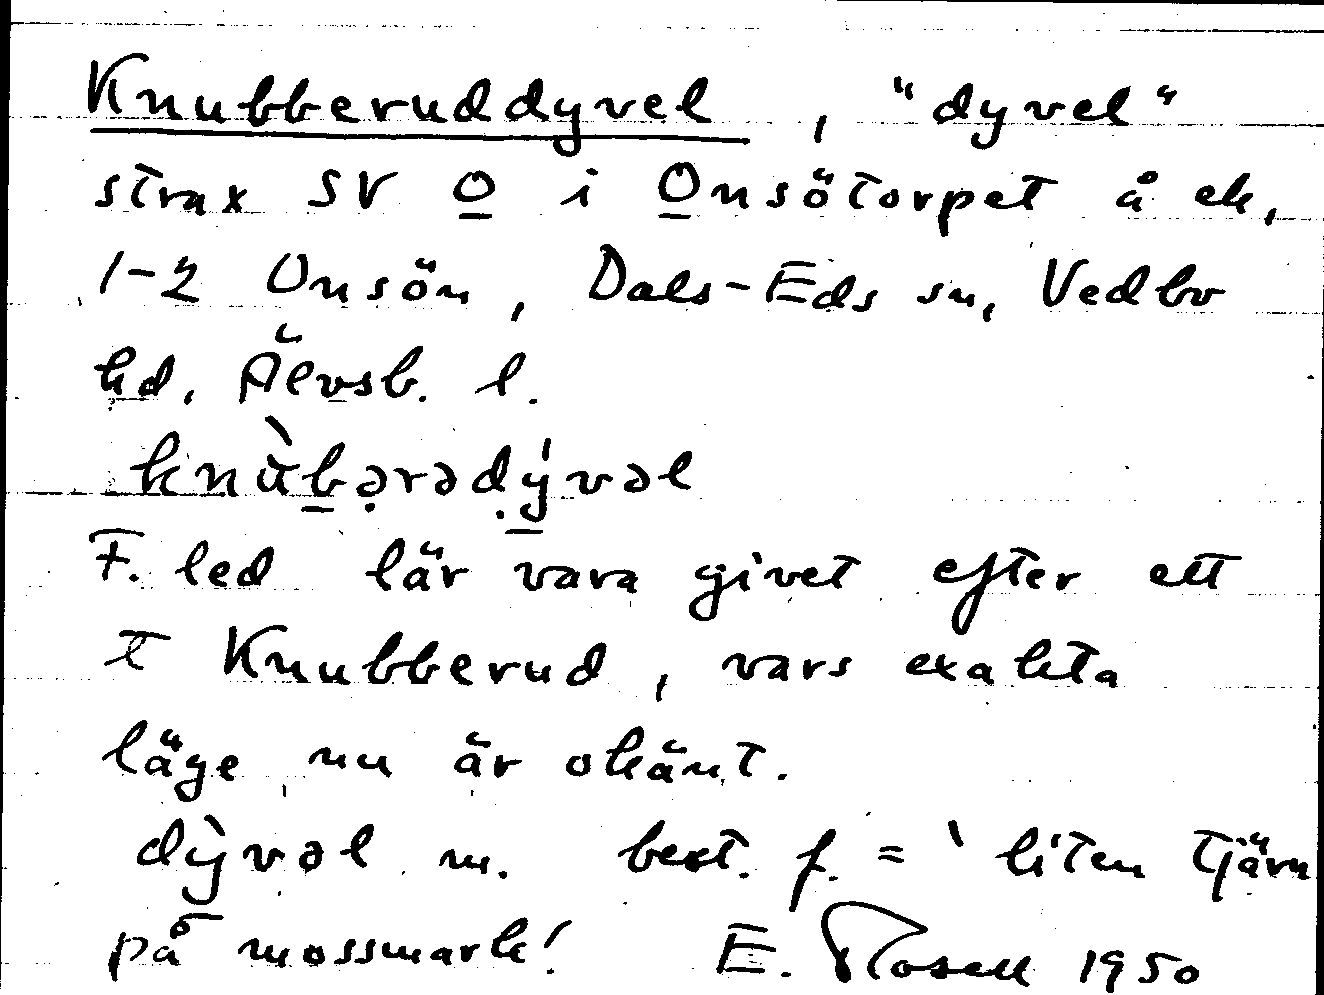 Knubberuddyvel, "dyvel"
strax SV O i Onsötorpet å ek,
1-2 Onsön, Dals-Eds sn, Vedbo
hd, Älvsb. l.
knùbərədývəl
F. led lär vara givet efter ett
t Knubberud, vars exakta
läge nu är okänt.
dỳvəl m. best. f. = 'liten tjärn
på mossmark' E. Rosell 1950